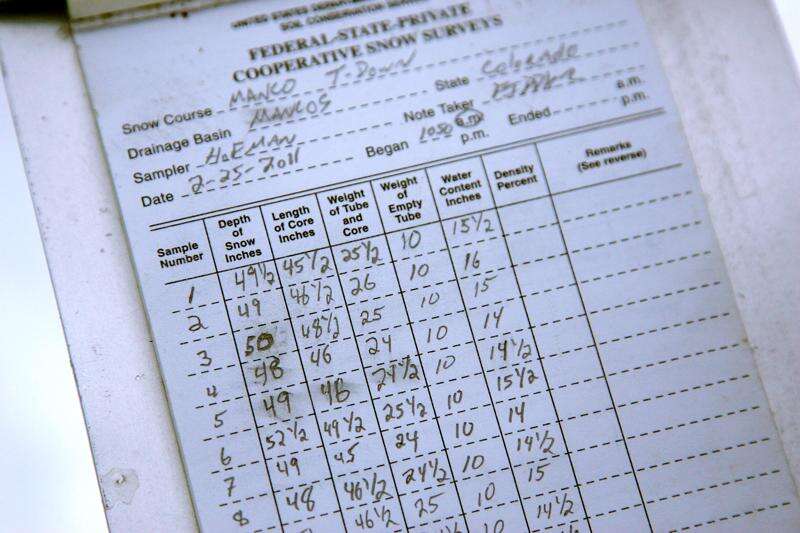 UNITED STATES
SOIL CONSERVATION
FEDERAL-STATE-PRIVATE
COOPERATIVE SNOW SURVEYS
Snow Course MANCO T-DOWN State COLORADO
Drainage Basin MANCOS Note Taker
Sampler HEEMAN Began 1050 a.m. p.m. Ended a.m. p.m.
Date 2-25-2011
Sample Number Depth of Snow Inches Length of Core Inches Weight of Tube and Core Weight of Empty Tube Water Content Inches Density Percent Remarks (See reverse)
1 49 1/2 45 1/2 25 1/2 10 15 1/2
2 49 46 1/2 26 10 16
3 50 48 1/2 25 10 15
4 48 46 24 10 14
5 49 46 24 1/2 10 14 1/2
6 52 1/2 49 1/2 25 1/2 10 15 1/2
7 49 45 24 10 14
8 48 46 1/2 24 1/2 10 14 1/2
46 1/2 25 10 15
10 14 1/2